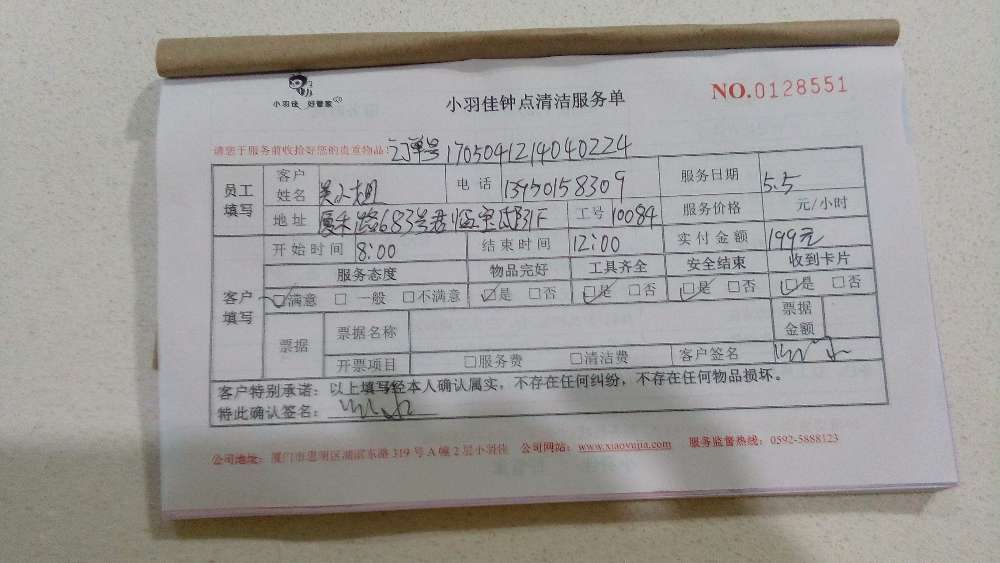 小羽佳 好管家
小羽佳钟点清洁服务单
NO.0128551
请您于服务前收拾好您的贵重物品! 订单号170504121404040224
员工填写
客户姓名 吴小姐 电话 13950158309 服务日期 5.5
地址 厦禾路683号 31F 工号 10084 服务价格 元/小时
客户填写
开始时间 8:00 结束时间 12:00 实付金额 199元
服务态度 物品完好 工具齐全 安全结束 收到卡片
☑满意 □一般 □不满意 ☑是 □否 ☑是 □否 ☑是 □否 ☑是 □否
票据 票据名称 票据金额
开票项目 □服务费 □清洁费 客户签名
客户特别承诺:以上填写经本人确认属实,不存在任何纠纷,不存在任何物品损坏。
特此确认签名:
公司地址:厦门市思明区湖滨东路319号A幢2层小羽佳 公司网站:www.xiaoyujia.com 服务监督热线:0592-5888123